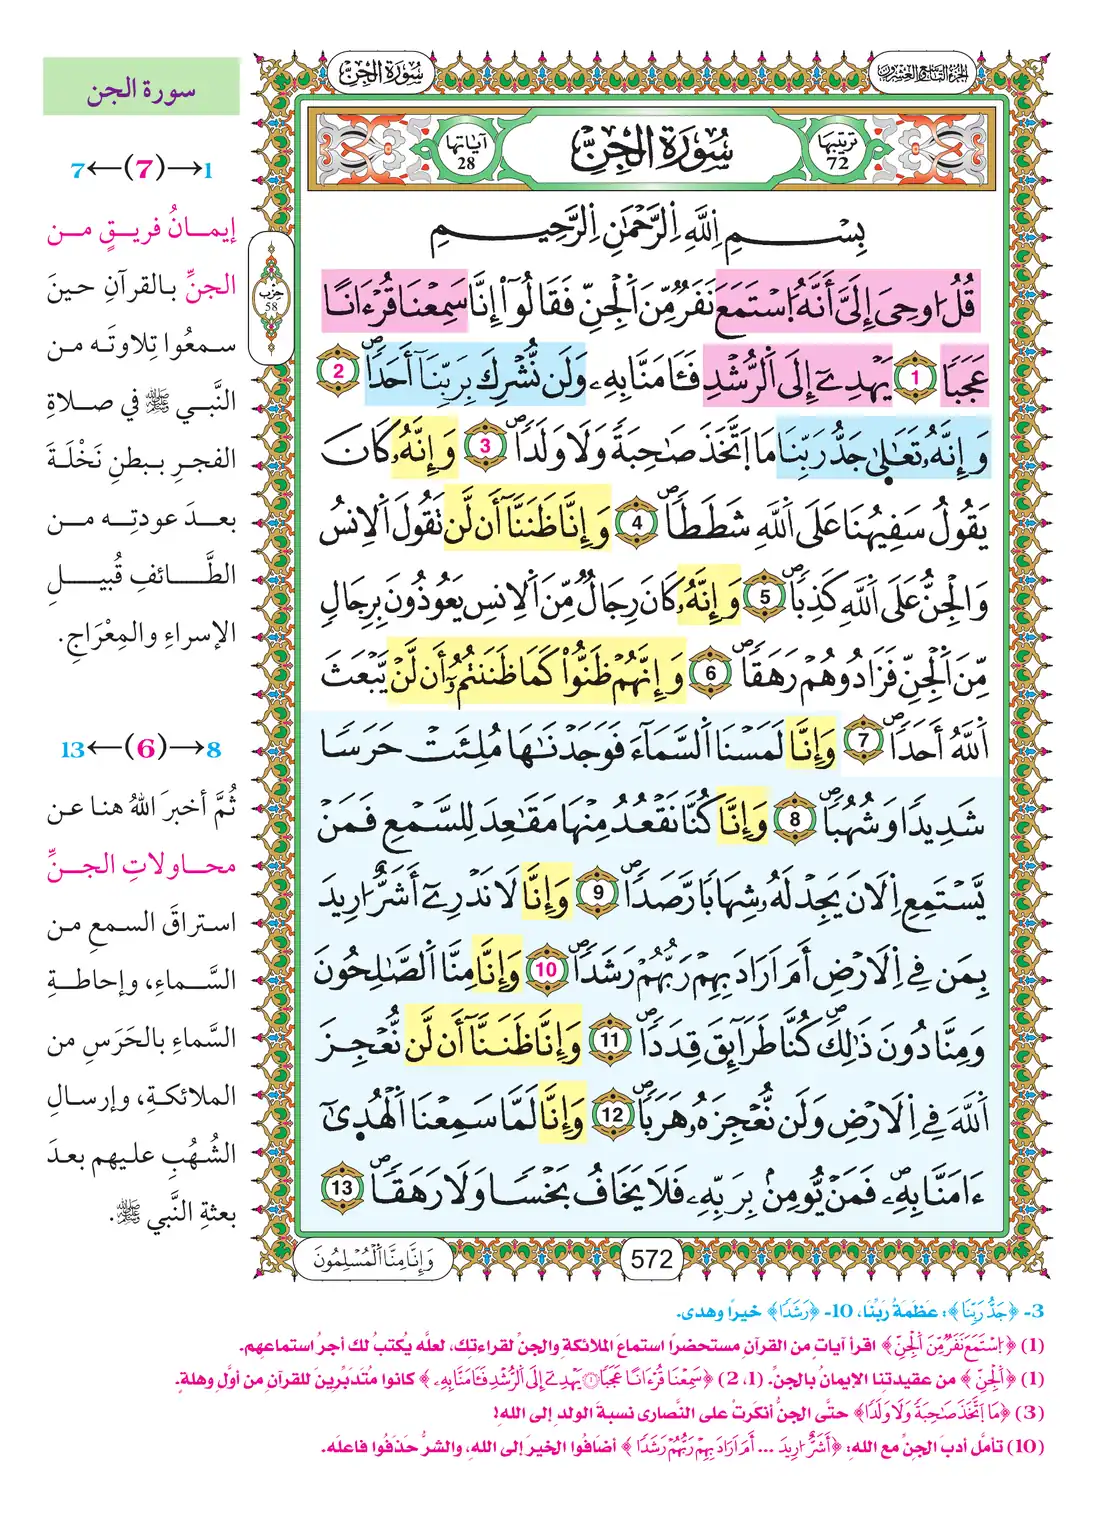 سُورَةُ الجِنِّ
الجزء التاسع والعشرون
سورة الجن
تَرتيبُها
72
سُورَةُ الجِنِّ
آيَاتُها
28
بِسْمِ اِ۬للَّهِ اِ۬لرَّحْمَٰنِ اِ۬لرَّحِيمِ
قُلُ ا۟وحِيَ إِلَيَّ أَنَّهُ اُ۪سْتَمَعَ نَفَرٌ مِّنَ اَ۬لْجِنِّ فَقَالُوٓاْ إِنَّا سَمِعْنَا قُرْءَانًا
عَجَبًا 1 يَهْدِےٓ إِلَي اَ۬لرُّشْدِ فَـَٔامَنَّا بِهِۦ وَلَن نُّشْرِكَ بِرَبِّنَآ أَحَدًا 2
وَإِنَّهُۥ تَعَٰلَىٰ جَدُّ رَبِّنَا مَا اَ۪تَّخَذَ صَٰحِبَةً وَلَا وَلَدًا 3 وَإِنَّهُۥ كَانَ
يَقُولُ سَفِيهُنَا عَلَي اَ۬للَّهِ شَطَطًا 4 وَإِنَّا ظَنَنَّآ أَن لَّن تَقُولَ اَ۬لِانسُ
وَالْجِنُّ عَلَي اَ۬للَّهِ كَذِبًا 5 وَإِنَّهُۥ كَانَ رِجَالٌ مِّنَ اَ۬لِانسِ يَعُوذُونَ بِرِجَالٍ
مِّنَ اَ۬لْجِنِّ فَزَادُوهُمْ رَهَقًا 6 وَإِنَّهُمْ ظَنُّواْ كَمَا ظَنَنتُمُۥٓ أَن لَّنْ يَّبْعَثَ
اَ۬للَّهُ أَحَدًا 7 وَإِنَّا لَمَسْنَا اَ۬لسَّمَآءَ فَوَجَدْنَٰهَا مُلِئَتْ حَرَسًا
شَدِيدًا وَشُهُبًا 8 وَإِنَّا كُنَّا نَقْعُدُ مِنْهَا مَقَٰعِدَ لِلسَّمْعِ فَمَنْ
يَّسْتَمِعِ اِ۬لَانَ يَجِدْ لَهُۥ شِهَابًا رَّصَدًا 9 وَإِنَّا لَا نَدْرِےٓ أَشَرٌّ ا۟رِيدَ
بِمَن فِي اِ۬لَارْضِ أَمَ اَرَادَ بِهِمْ رَبُّهُمْ رَشَدًا 10 وَإِنَّا مِنَّا اَ۬لصَّٰلِحُونَ
وَمِنَّا دُونَ ذَٰلِكَ كُنَّا طَرَآئِقَ قِدَدًا 11 وَإِنَّا ظَنَنَّآ أَن لَّن نُّعْجِزَ
اَ۬للَّهَ فِي اِ۬لَارْضِ وَلَن نُّعْجِزَهُۥ هَرَبًا 12 وَإِنَّا لَمَّا سَمِعْنَا اَ۬لْهُدَىٰٓ
ءَامَنَّا بِهِۦ فَمَنْ يُّومِنۢ بِرَبِّهِۦ فَلَا يَخَافُ بَخْسًا وَلَا رَهَقًا 13
حِزْب
58
سورة الجن
1→(7)←7
إيمانُ فريقٍ من
الجنِّ بالقرآنِ حينَ
سمعُوا تِلاوتَه من
النَّبي ﷺ في صلاةِ
الفجرِ ببطنِ نَخْلَةَ
بعدَ عودتِه من
الطَّائفِ قُبيلِ
الإسراءِ والمِعْرَاجِ.
8→(6)←13
ثُمَّ أخبرَ اللهُ هنا عن
محاولاتِ الجنِّ
استراقَ السمعِ من
السَّماءِ، وإحاطةِ
السَّماءِ بالحَرَسِ من
الملائكةِ، وإرسالِ
الشُهُبِ عليهم بعدَ
بعثةِ النَّبي ﷺ.
572
وَإِنَّا مِنَّا اَ۬لْمُسْلِمُونَ
3- ﴿جَدُّ رَبِّنَا﴾: عَظَمَةُ رَبِّنَا، 10- ﴿رَشَدًا﴾ خيرًا وهدى.
(1) ﴿اُ۪سْتَمَعَ نَفَرٌ مِّنَ اَ۬لْجِنِّ﴾ اقرأ آياتٍ من القرآنِ مستحضرًا استماعَ الملائكةِ والجنِّ لقراءتِك، لعلَّه يُكتبُ لك أجرُ استماعهِم.
(1) ﴿اَ۬لْجِنِّ﴾ من عقيدتنا الإيمانُ بالجنِّ. (1، 2) ﴿سَمِعْنَا قُرْءَانًا عَجَبًا ۝ يَهْدِےٓ إِلَي اَ۬لرُّشْدِ فَـَٔامَنَّا بِهِۦ﴾ كانوا مُتَدَبِّرِينَ للقرآنِ من أولِ وهلةٍ.
(3) ﴿مَا اَ۪تَّخَذَ صَٰحِبَةً وَلَا وَلَدًا﴾ حتَّى الجنُّ أنكرَتْ على النَّصارى نسبةَ الولدِ إلى اللهِ!
(10) تأمَّل أدبَ الجنِّ مع الله: ﴿أَشَرٌّ ا۟رِيدَ ... أَمَ اَرَادَ بِهِمْ رَبُّهُمْ رَشَدًا﴾ أضافُوا الخيرَ إلى اللهِ، والشرَّ حذَفُوا فاعلَه.